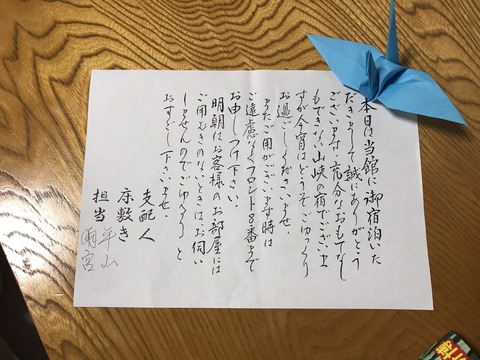 本日は当館に御宿泊いた
だきまして誠にありがとう
ございます。充分なおもてなし
もできない山峡の宿でございま
すが今宵はどうぞごゆっくり
お過ごしくださいませ。
またご用がございます時は
ご遠慮なくフロント8番まで
お申しつけ下さい。
明朝はお客様のお部屋には
ご用むきのないときはお伺い
しませんのでごゆっくりと
おすごし下さいませ。
支配人
床敷き 平山
担当 雨宮